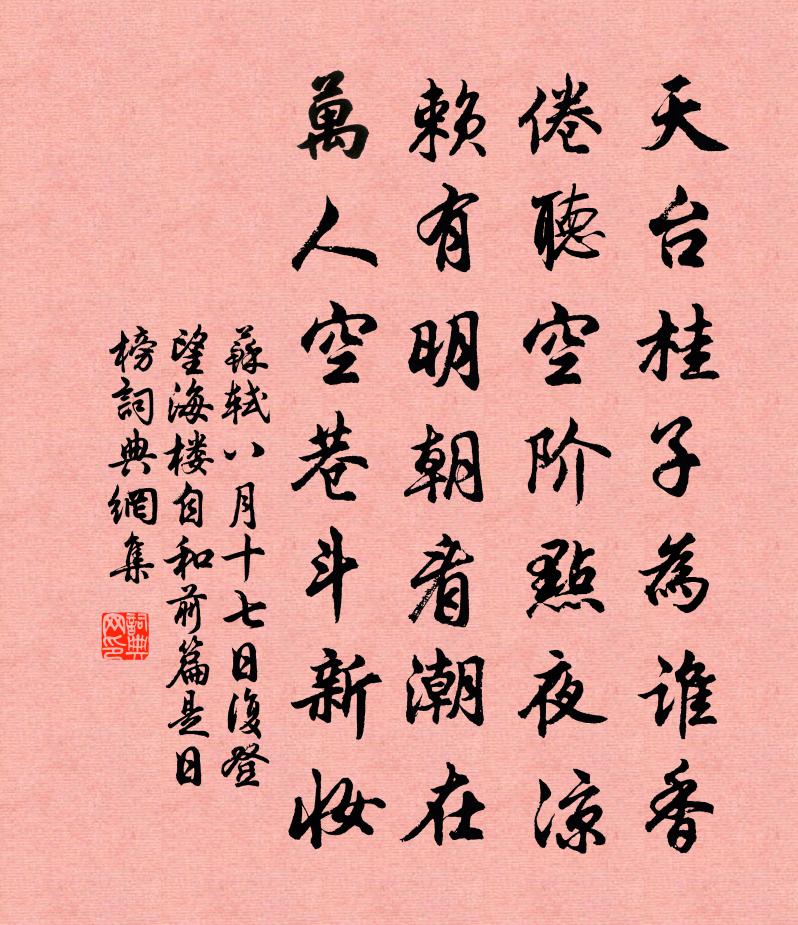 天台桂子為誰香
倦聽空阶點夜凉
賴有明朝看潮在
萬人空巷斗新妝
蘇軾八月十七日復登
望海楼自和前篇是日
榜詞典網集
詞典
网印